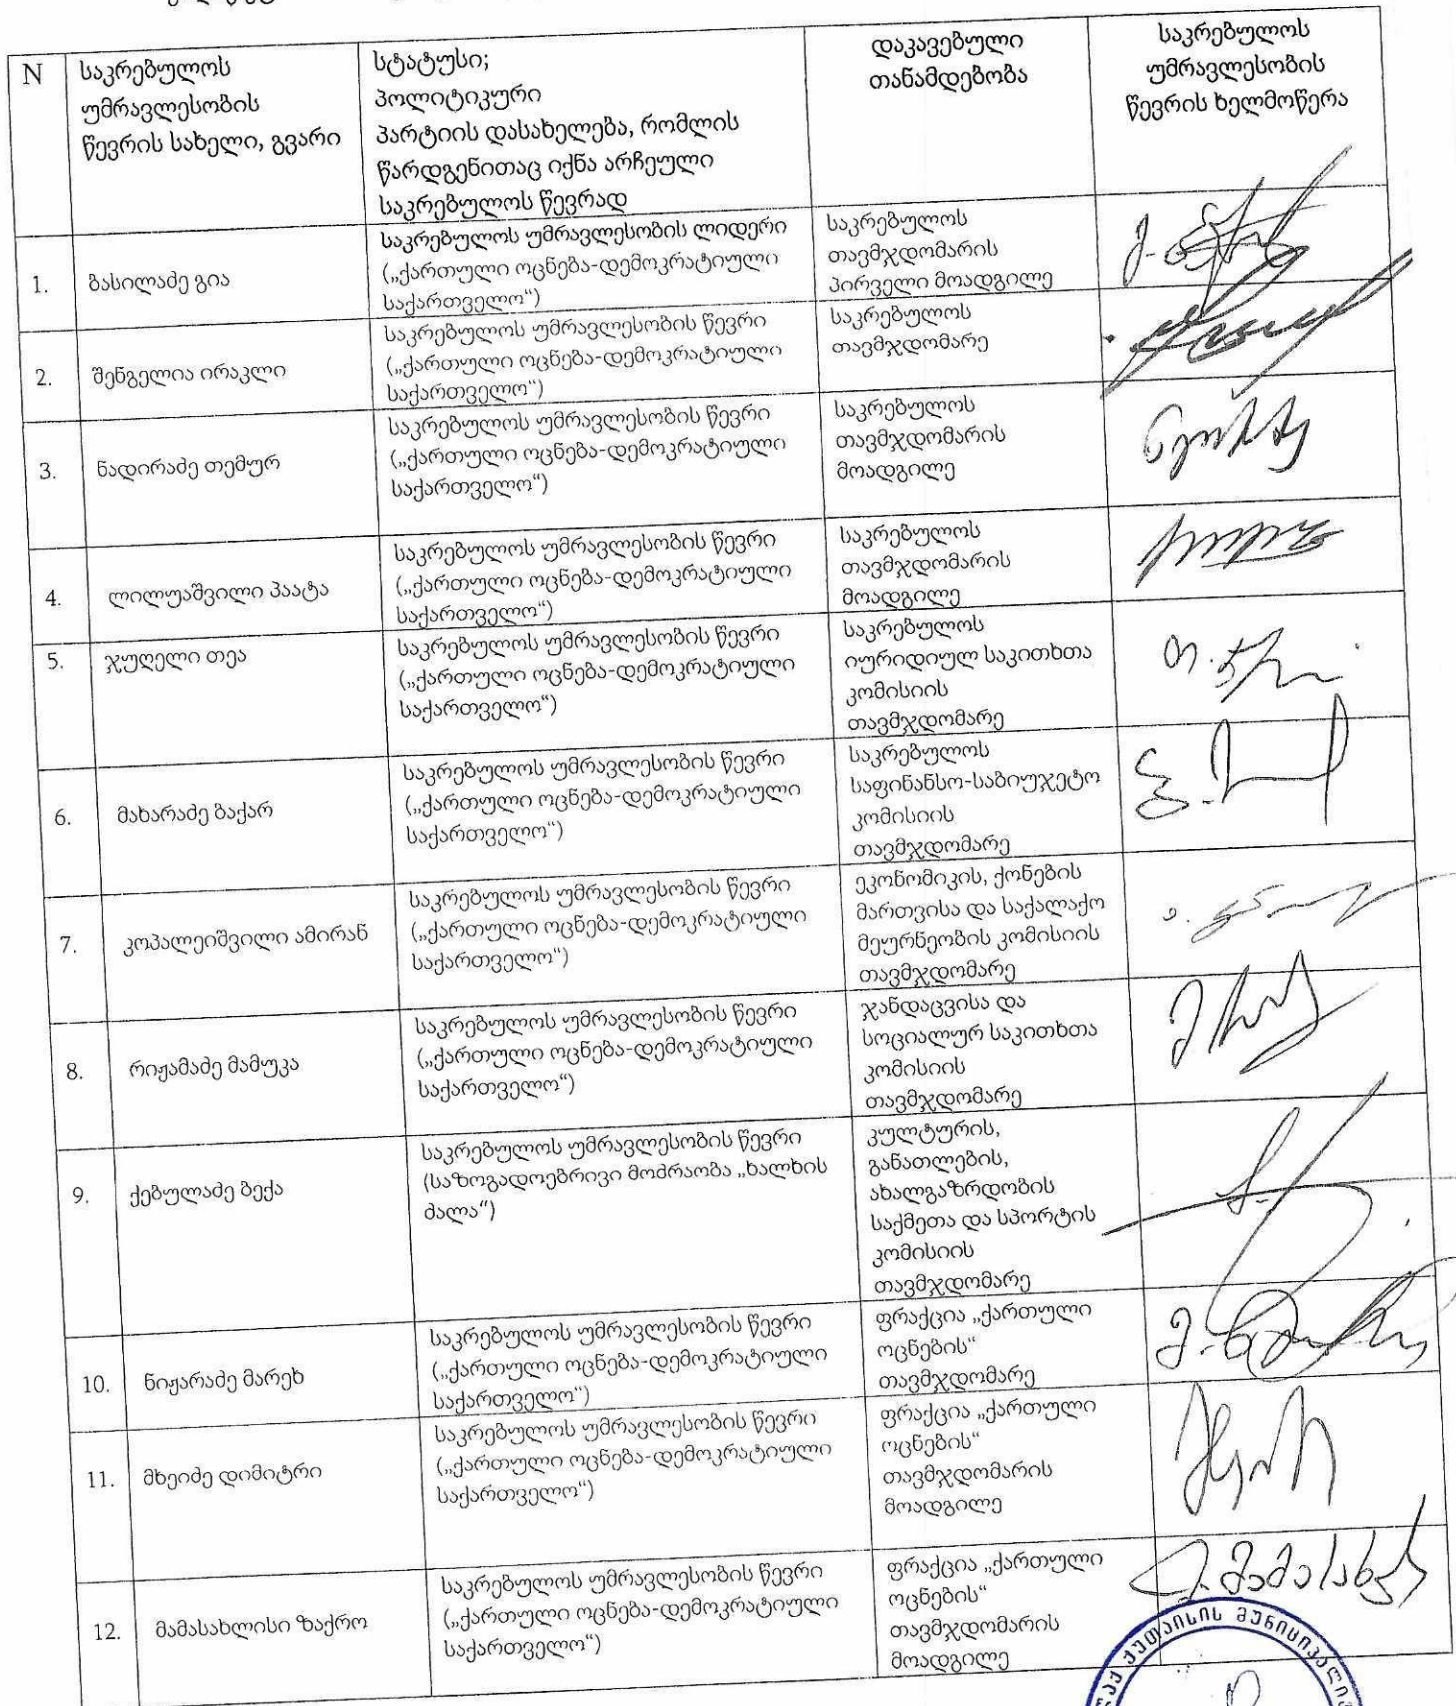 N
საკრებულოს
უმრავლესობის
წევრის სახელი, გვარი
სტატუსი;
პოლიტიკური
პარტიის დასახელება, რომლის
წარდგენითაც იქნა არჩეული
საკრებულოს წევრად
დაკავებული
თანამდებობა
საკრებულოს
უმრავლესობის
წევრის ხელმოწერა
1.
ბასილაძე გია
საკრებულოს უმრავლესობის ლიდერი
(„ქართული ოცნება-დემოკრატიული
საქართველო“)
საკრებულოს
თავმჯდომარის
პირველი მოადგილე
2.
შენგელია ირაკლი
საკრებულოს უმრავლესობის წევრი
(„ქართული ოცნება-დემოკრატიული
საქართველო“)
საკრებულოს
თავმჯდომარე
3.
ნადირაძე თემურ
საკრებულოს უმრავლესობის წევრი
(„ქართული ოცნება-დემოკრატიული
საქართველო“)
საკრებულოს
თავმჯდომარის
მოადგილე
4.
ლილუაშვილი პაატა
საკრებულოს უმრავლესობის წევრი
(„ქართული ოცნება-დემოკრატიული
საქართველო“)
საკრებულოს
თავმჯდომარის
მოადგილე
5.
ჯუღელი თეა
საკრებულოს უმრავლესობის წევრი
(„ქართული ოცნება-დემოკრატიული
საქართველო“)
საკრებულოს
იურიდიულ საკითხთა
კომისიის
თავმჯდომარე
6.
მახარაძე ბაქარ
საკრებულოს უმრავლესობის წევრი
(„ქართული ოცნება-დემოკრატიული
საქართველო“)
საკრებულოს
საფინანსო-საბიუჯეტო
კომისიის
თავმჯდომარე
7.
კოპალეიშვილი ამირან
საკრებულოს უმრავლესობის წევრი
(„ქართული ოცნება-დემოკრატიული
საქართველო“)
ეკონომიკის, ქონების
მართვისა და საქალაქო
მეურნეობის კომისიის
თავმჯდომარე
8.
რიჟამაძე მამუკა
საკრებულოს უმრავლესობის წევრი
(„ქართული ოცნება-დემოკრატიული
საქართველო“)
ჯანდაცვისა და
სოციალურ საკითხთა
კომისიის
თავმჯდომარე
9.
ქებულაძე ბექა
საკრებულოს უმრავლესობის წევრი
(საზოგადოებრივი მოძრაობა „ხალხის
ძალა“)
კულტურის,
განათლების,
ახალგაზრდობის
საქმეთა და სპორტის
კომისიის
თავმჯდომარე
10.
ნიჟარაძე მარეხ
საკრებულოს უმრავლესობის წევრი
(„ქართული ოცნება-დემოკრატიული
საქართველო“)
ფრაქცია „ქართული
ოცნების“
თავმჯდომარე
11.
მხეიძე დიმიტრი
საკრებულოს უმრავლესობის წევრი
(„ქართული ოცნება-დემოკრატიული
საქართველო“)
ფრაქცია „ქართული
ოცნების“
თავმჯდომარის
მოადგილე
12.
მამასახლისი ზაქრო
საკრებულოს უმრავლესობის წევრი
(„ქართული ოცნება-დემოკრატიული
საქართველო“)
ფრაქცია „ქართული
ოცნების“
თავმჯდომარის
მოადგილე
ქუთაისის